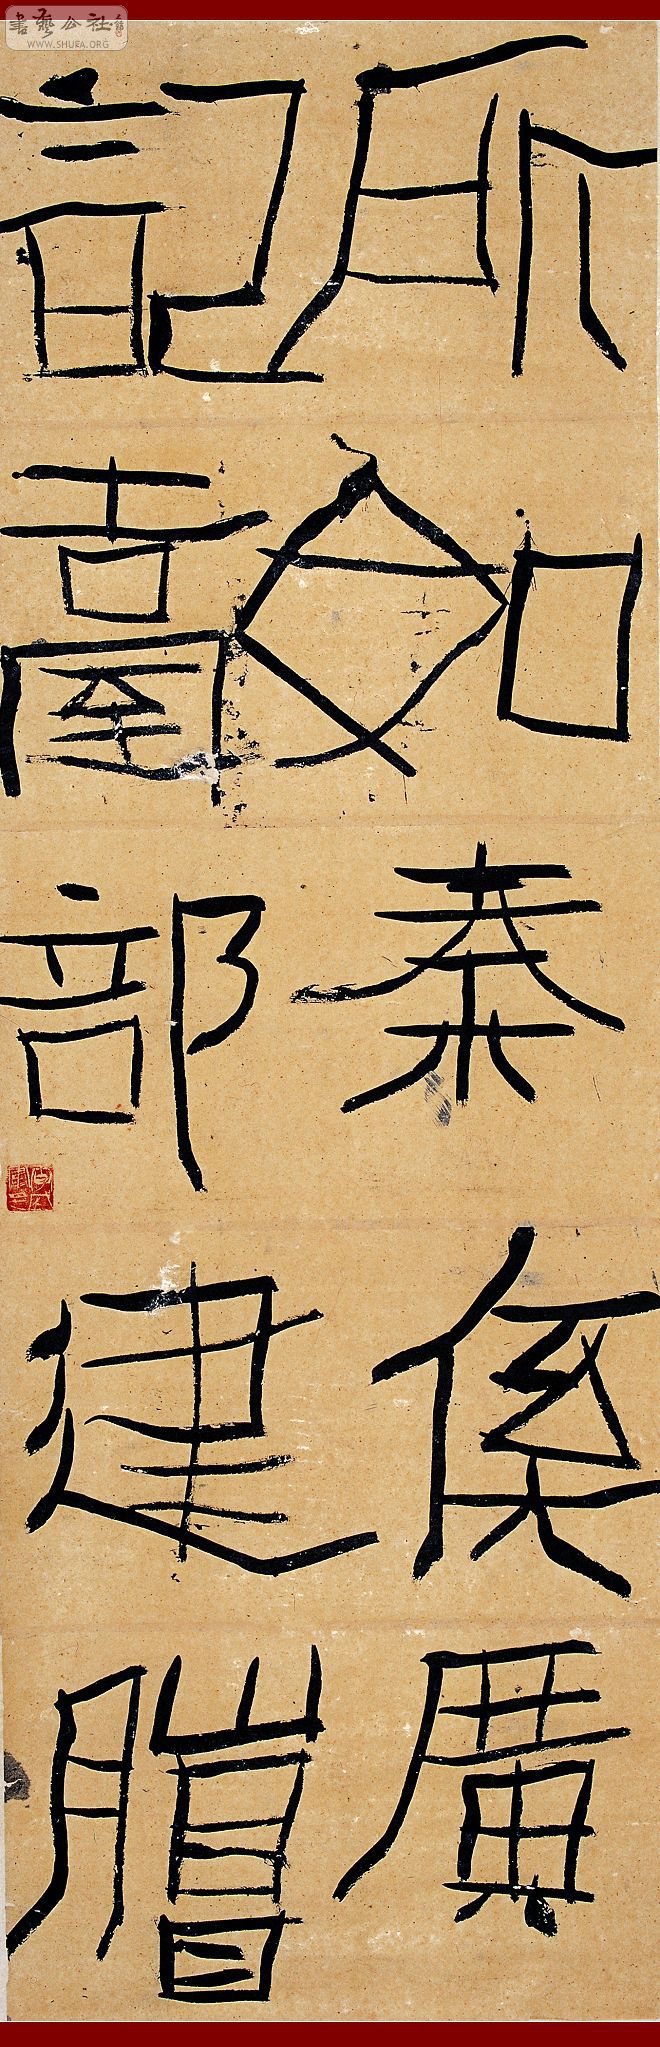 書藝公社
WWW.SHUFA.ORG
所如秦廣
記臺部建